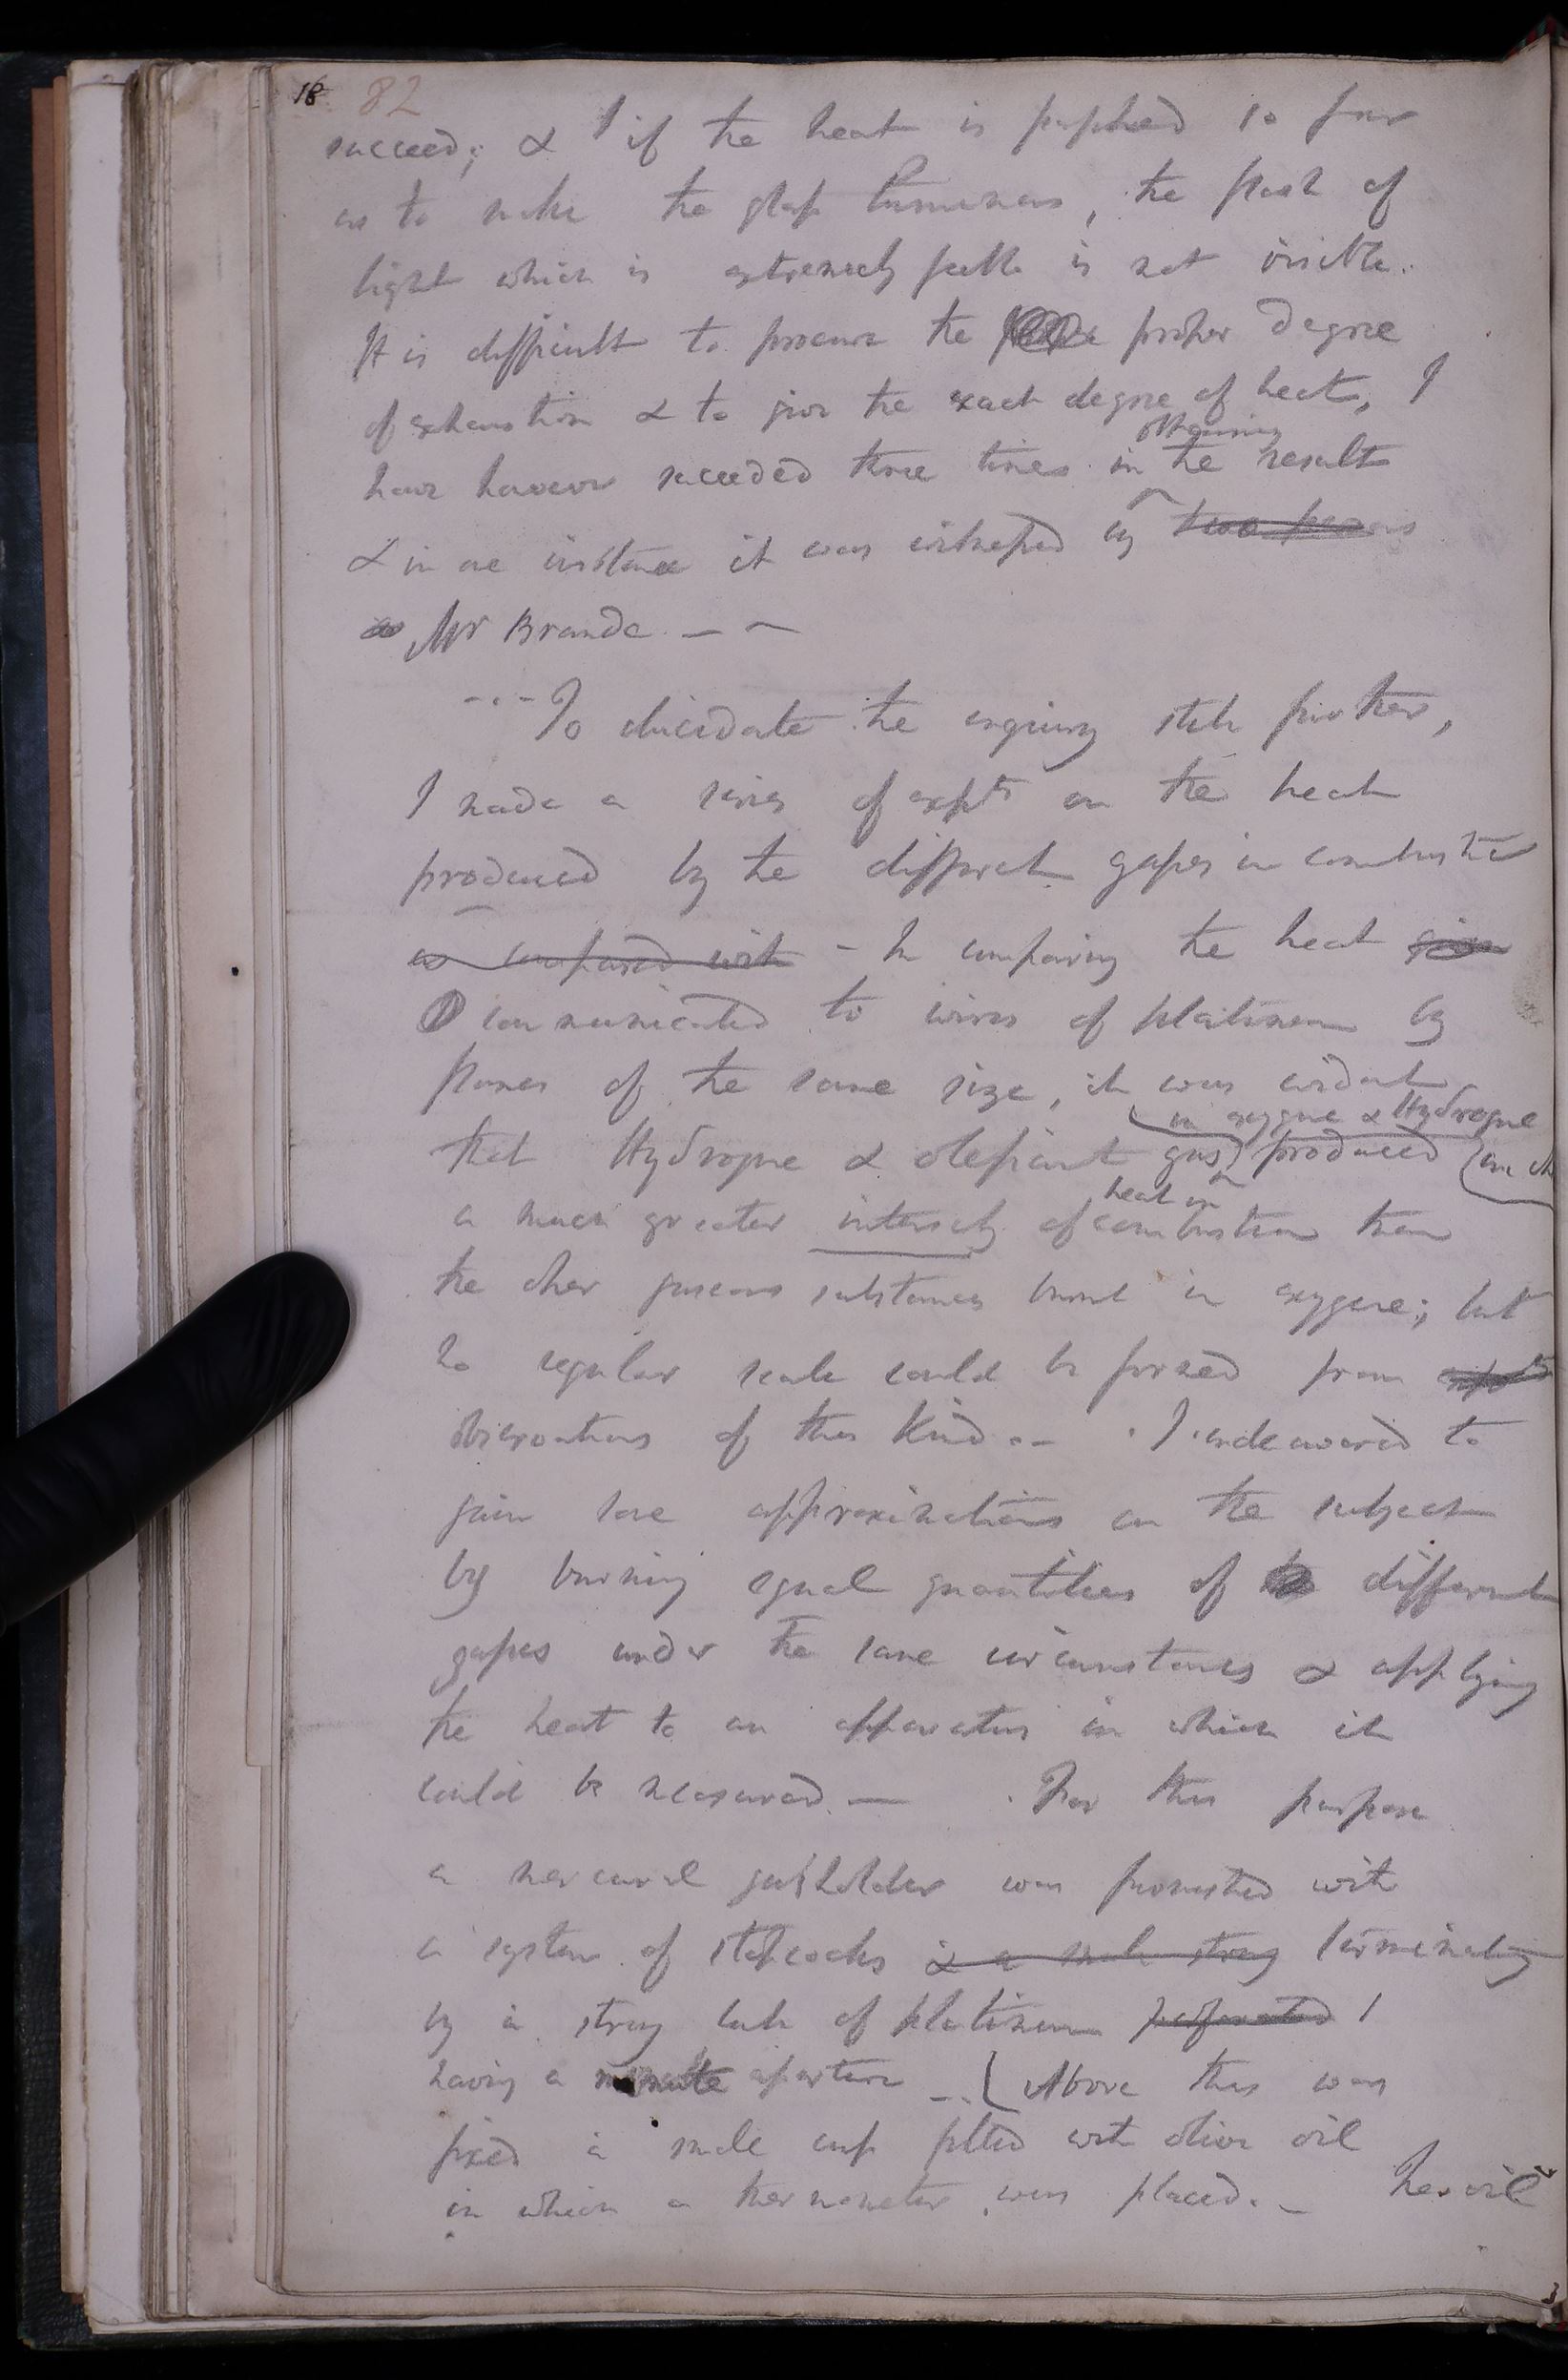 18 82
succeed; & if the heat is pushed so far
as to make the glass luminous, the flash of
light which is extremely feeble is not visible.
It is difficult to procure the proper degree
of exhaustion & to give the exact degree of heat, I
obtaining
have however succeeded three times in the results
& in one instance it was witnessed by two persons
Mr Brande. — —
--- To elucidate the enquiry still further,
I made a series of expts on the heat
produced by the different gases in combustion
as compared with - In comparing the heat given
communicated to wires of platinum by
flames of the same size, it was evident
in oxygene & Hydrogene
that Hydrogene & olefiant gas produced
heat in
a much greater intensity of combustion than
the other gaseous substances burnt in oxygene; but
no regular scale could be formed from
observations of this kind. - I endeavored to
gain some approximations on the subject
by burning equal quantities of different
gases under the same circumstances & applying
the heat to an apparatus in which it
could be measured. — For this purpose
a mercurial gasholder was furnished with
a system of stopcocks & a small strong terminating
by a strong tube of platinum perforated
having a minute aperture -- ( Above this was
fixed a small cup filled with olive oil
in which a thermometer was placed. -